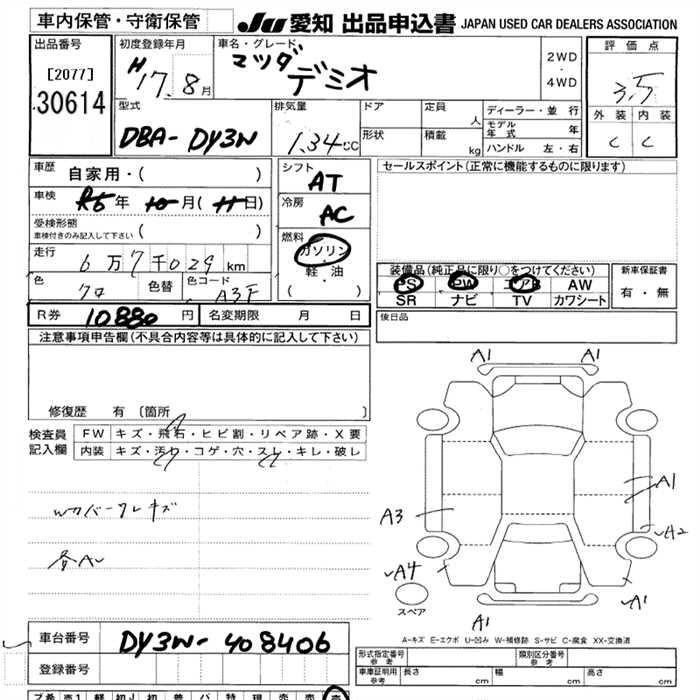 車内保管・守衛保管
JU 愛知 出品申込書 JAPAN USED CAR DEALERS ASSOCIATION
出品番号
[2077]
30614
初度登録年月
H17.8月
車名・グレード
マツダ デミオ
2WD
・
4WD
評価点
3.5
外装 内装
C C
型式
DBA-DY3W
排気量
1.34cc
ドア
形状
定員 人
積載 kg
ディーラー・並行
モデル年式 年
ハンドル 左・右
車歴 自家用・( )
車検 R5年10月(11日)
受検形態
車検付きのみ記入して下さい ( )
走行 6万7千029km
色 クロ 色替 色コード A3F
シフト AT
冷房 AC
燃料 ガソリン
・
軽・油
( )
セールスポイント(正常に機能するものに限ります)
装備品(純正品に限り○をつけてください)
PS PW エアB AW
SR ナビ TV カワシート
新車保証書
有・無
R券 10880円 名変期限 月 日
後日品
注意事項申告欄(不具合内容等は具体的に記入して下さい)
修復歴 有 〔箇所 〕
検査員記入欄
FW キズ・飛石・ヒビ割・リペア跡・X要
内装 キズ・汚れ・コゲ・穴・スレ・キレ・破レ
Wカバークレキズ
A1 A1
A1
A3
A2
A4
A1
A1
スペア
A-キズ E-エクボ U-凹み W-補修跡 S-サビ C-腐食 XX-交換済
車台番号 DY3W-408406
登録番号
形式指定番号 参考
類別区分番号 参考
車庫証明用 参考 長さ cm 幅 cm 高さ cm